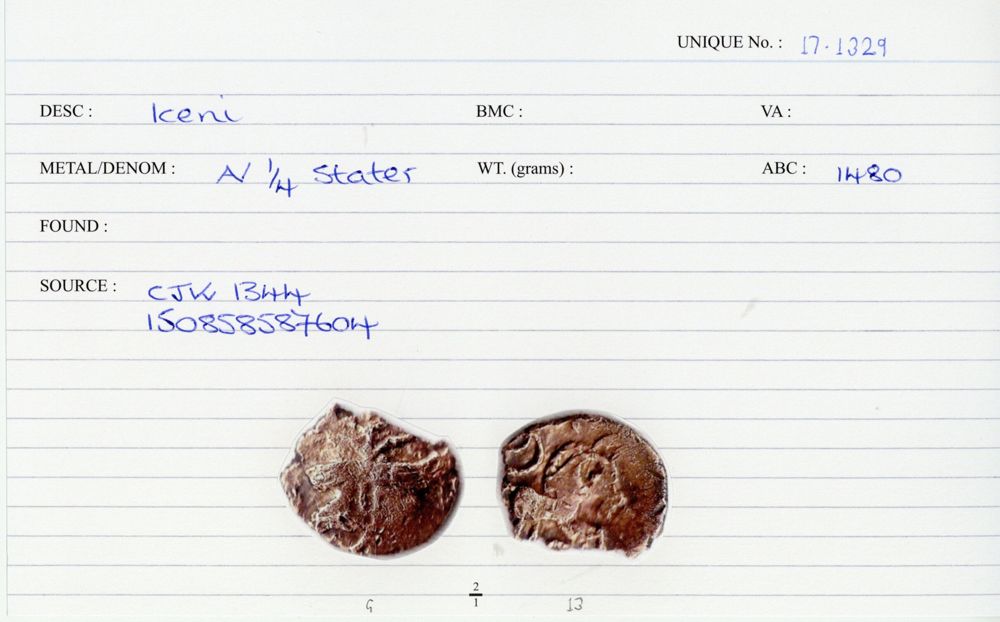 UNIQUE No. : 17.1329
DESC : Iceni BMC : VA :
METAL/DENOM : AV 1/4 Stater WT. (grams) : ABC : 1480
FOUND :
SOURCE : CJK 1344
150858587604
2
1
9 13